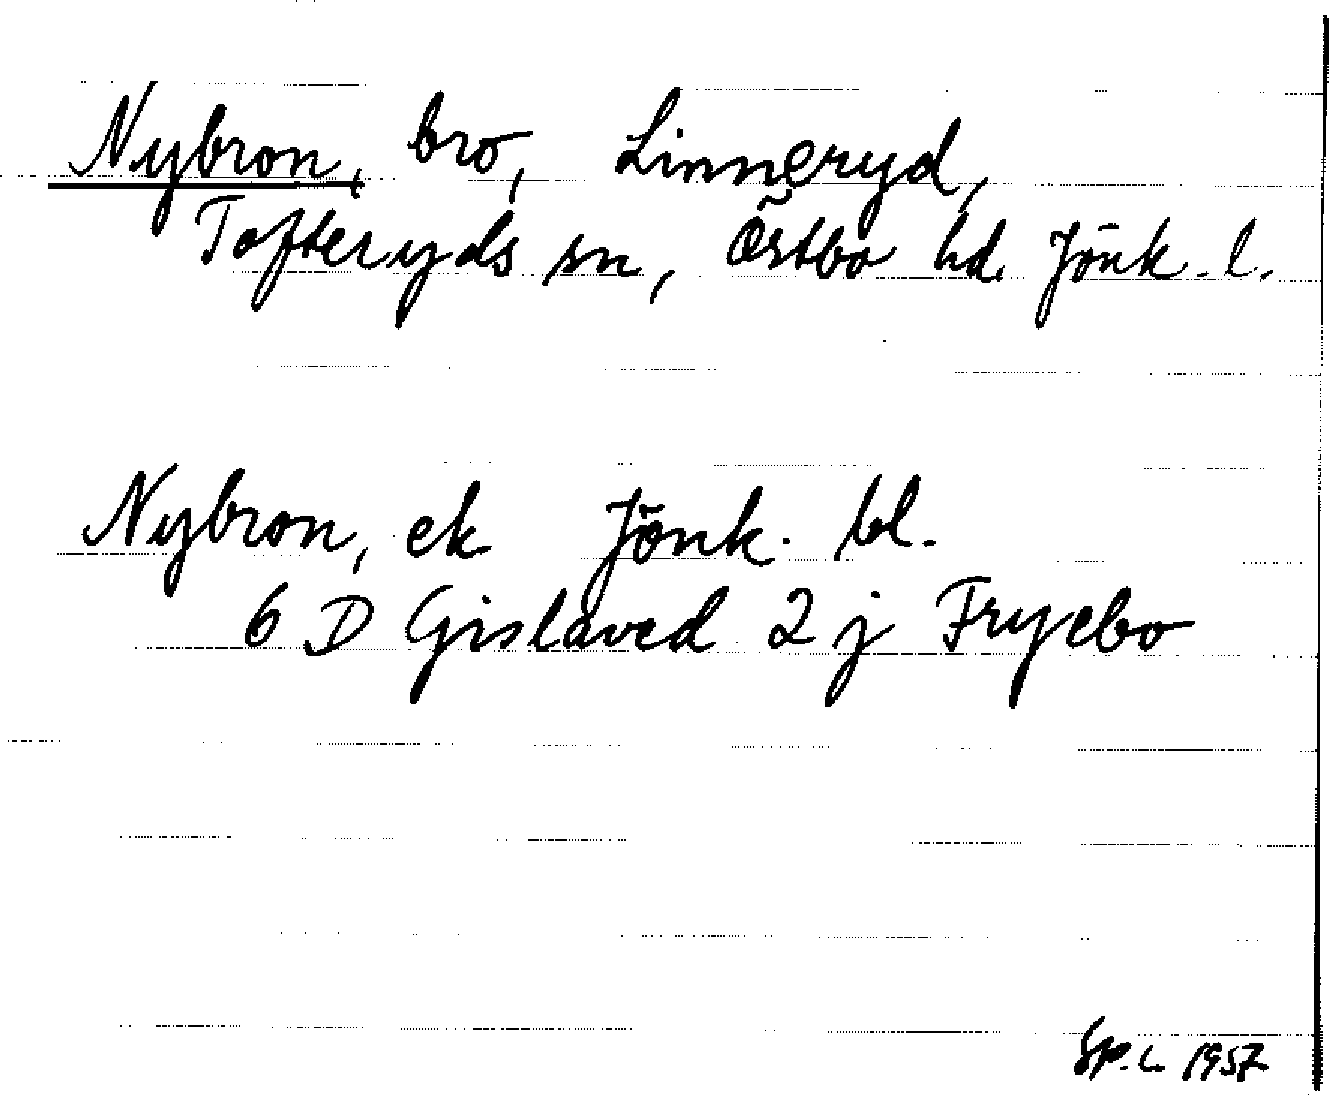 Nybron, bro, Linneryd,
Tofteryds sn, Östbo hd. Jönk. l.
Nybron, ek Jönk. bl.
6 D Gislaved 2 j Fryebo
Sp. L. 1957